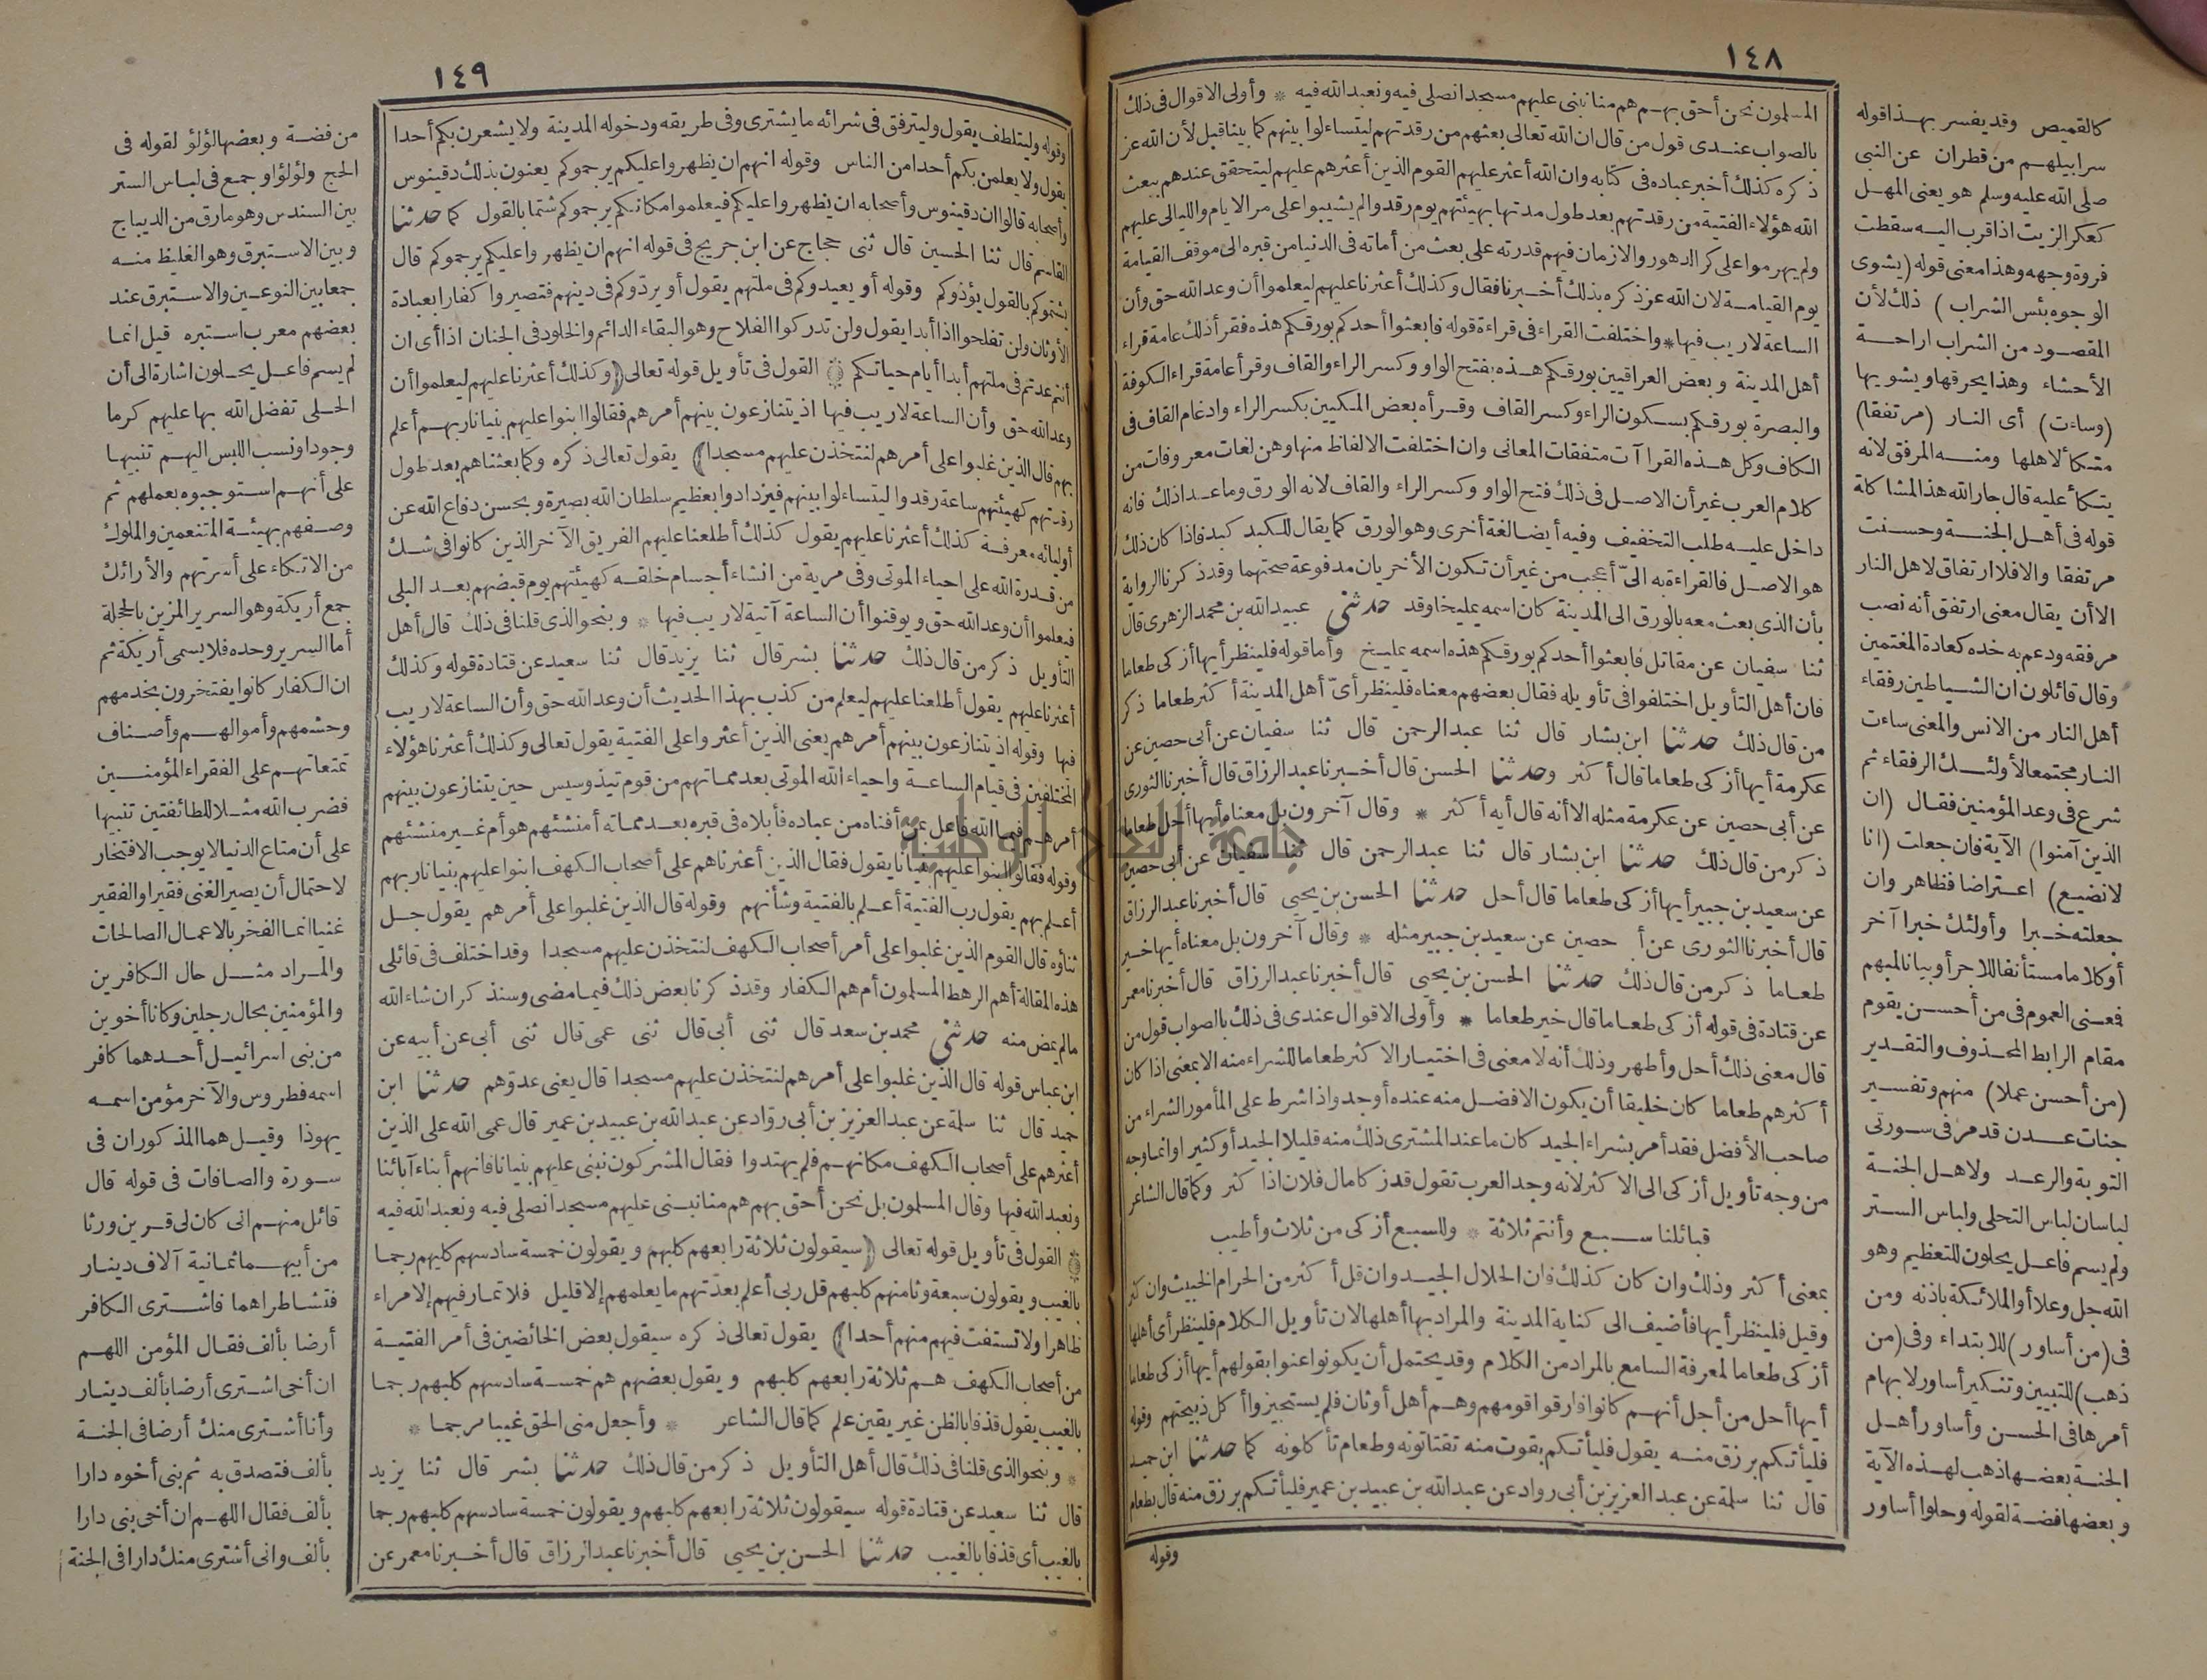 ١٤٨
المسلمون نحن أحق بهم هم منا نبنى عليهم مسجدا نصلى فيه ونعبد الله فيه * وأولى الاقوال فى ذلك
بالصواب عندى قول من قال ان الله تعالى بعثهم من رقدتهم ليتساءلوا بينهم كما بينا قبل لأن الله عز
ذكره كذلك أخبر عباده فى كتابه وان الله أعثر عليهم القوم الذين أعثرهم عليهم ليتحقق عندهم ببعث
الله هؤلاء الفتية من رقدتهم بعد طول مدتها بهيئتهم يوم رقدوا لم يشيبوا على مر الايام والليالى عليهم
ولم يهرموا على كر الدهور والازمان فيهم قدرته على بعث من أماته فى الدنيا من قبره الى موقف القيامة
يوم القيامة لان الله عز ذكره بذلك أخبرنا فقال وكذلك أعثرنا عليهم ليعلموا أن وعد الله حق وأن
الساعة لاريب فيها * واختلفت القراء فى قراءة قوله فابعثوا أحدكم بورقكم هذه فقرأ ذلك عامة قراء
أهل المدينة وبعض العراقيين بورقكم هذه بفتح الواو وكسر الراء والقاف وقرأ عامة قراء الكوفة
والبصرة بورقكم بسكون الراء وكسر القاف وقرأه بعض المكيين بكسر الراء وادغام القاف فى
الكاف وكل هذه القراآت متفقات المعانى وان اختلفت الالفاظ منها وهن لغات معروفات من
كلام العرب غير أن الاصل فى ذلك فتح الواو وكسر الراء والقاف لانه الورق وما عدا ذلك فانه
داخل عليه طلب التخفيف وفيه أيضا لغة أخرى وهو الورق كما يقال للكبد كبد فاذا كان ذلك
هو الاصل فالقراءة به الىّ أعجب من غير أن تكون الأخريان مدفوعة صحتهما وقد ذكرنا الرواية
بأن الذى بعث معه بالورق الى المدينة كان اسمه يمليخا وقد حدثنى عبيد الله بن محمد الزهرى قال
ثنا سفيان عن مقاتل فابعثوا أحدكم بورقكم هذه اسمه يمليخ وأما قوله فلينظر أيها أزكى طعاما
فان أهل التأويل اختلفوا فى تأويله فقال بعضهم معناه فلينظر أىّ أهل المدينة أكثر طعاما ذكر
من قال ذلك حدثنا ابن بشار قال ثنا عبد الرحمن قال ثنا سفيان عن أبى حصين عن
عكرمة أيها أزكى طعاما قال أكثر وحدثنا الحسن قال أخبرنا عبد الرزاق قال أخبرنا الثورى
عن أبى حصين عن عكرمة مثله الا أنه قال أيه أكثر * وقال آخرون بل معناه أيها أحل طعاما
ذكر من قال ذلك حدثنا ابن بشار قال ثنا عبد الرحمن قال ثنا سفيان عن أبى حصين
عن سعيد بن جبير أيها أزكى طعاما قال أحل حدثنا الحسن بن يحيى قال أخبرنا عبد الرزاق
قال أخبرنا الثورى عن أ حصين عن سعيد بن جبير مثله * وقال آخرون بل معناه أيها خير
طعاما ذكر من قال ذلك حدثنا الحسن بن يحيى قال أخبرنا عبد الرزاق قال أخبرنا معمر
عن قتادة فى قوله أزكى طعاما قال خير طعاما * وأولى الاقوال عندى فى ذلك بالصواب قول من
قال معنى ذلك أحل وأطهر وذلك أنه لا معنى فى اختيار الاكثر طعاما للشراء منه الا بمعنى اذا كان
أكثرهم طعاما كان خليقا أن يكون الافضل منه عنده أوجد واذا شرط على المأمور الشراء من
صاحب الأفضل فقد أمر بشراء الجيد كان ما عند المشترى ذلك منه قليلا الجيد أو كثيرا وانما وجه
من وجه تأويل أزكى الى الاكثر لانه وجد العرب تقول قد زكا مال فلان اذا كثر وكما قال الشاعر
قبائلنا سبع وأنتم ثلاثة * وللسبع أزكى من ثلاث وأطيب
بمعنى أكثر وذلك وان كان كذلك فان الحلال الجيد وان قل أكثر من الحرام الخبيث وان كثر
وقيل فلينظر أيها فأضيف الى كناية المدينة والمراد بها أهلها لان تأويل الكلام فلينظر أى أهلها
أزكى طعاما لمعرفة السامع بالمراد من الكلام وقد يحتمل أن يكونوا عنوا بقولهم أيها أزكى طعاما
أيها أحل من أجل أنهم كانوا فارقوا قومهم وهم أهل أوثان فلم يستجيزوا أكل ذبيحتهم وقوله
فليأتكم برزق منه يقول فليأتكم بقوت منه تقتاتونه وطعام تأكلونه كما حدثنا ابن حميد
قال ثنا سلمة عن عبد العزيز بن أبى رواد عن عبد الله بن عبيد بن عمير فليأتكم برزق منه قال بطعام
وقوله
كالقميص وقد يفسر بهذا قوله
سرابيلهم من قطران عن النبى
صلى الله عليه وسلم هو يعنى المهل
كعكر الزيت اذا قرب اليه سقطت
فروة وجهه وهذا معنى قوله (يشوى
الوجوه بئس الشراب) ذلك لأن
المقصود من الشراب اراحة
الأحشاء وهذا يحرقها ويشويها
(وساءت) أى النار (مرتفقا)
متكأ لاهلها ومنه المرفق لانه
يتكأ عليه قال جار الله هذا المشاكلة
قوله فى أهل الجنة وحسنت
مرتفقا والا فلا ارتفاق لاهل النار
الا أن يقال معنى ارتفق أنه نصب
مرفقه ودعم به خده كعادة المغتمين
وقال قائلون ان الشياطين رفقاء
أهل النار من الانس والمعنى ساءت
النار مجتمعا لأولئك الرفقاء ثم
شرع فى وعد المؤمنين فقال (ان
الذين آمنوا) الآية فان جعلت (انا
لا نضيع) اعتراضا فظاهر وان
جعلته خبرا وأولئك خبرا آخر
أو كلاما مستأنفا للاجر أو بيانا للمبهم
فمعنى العموم فى من أحسن يقوم
مقام الرابط المحذوف والتقدير
(من أحسن عملا) منهم وتفسير
جنات عدن قد مر فى سورتى
التوبة والرعد ولاهل الجنة
لباسان لباس التحلى ولباس الستر
ولم يسم فاعل يحلون للتعظيم وهو
الله جل وعلا أو الملائكة باذنه ومن
فى (من أساور) للابتداء وفى (من
ذهب) للتبيين وتنكير أساور لابهام
أمرها فى الحسن وأساور أهل
الجنة بعضها ذهب لهذه الآية
وبعضها فضة لقوله وحلوا أساور
١٤٩
وقوله وليتلطف يقول وليترفق فى شرائه ما يشترى وفى طريقه ودخوله المدينة ولا يشعرن بكم أحدا
يقول ولا يعلمن بكم أحدا من الناس وقوله انهم ان يظهروا عليكم يرجموكم يعنون بذلك دقينوس
وأصحابه قالوا ان دقينوس وأصحابه ان يظهروا عليكم فيعلموا مكانكم يرجموكم شتما بالقول كما حدثنا
القاسم قال ثنا الحسين قال ثنى حجاج عن ابن جريج فى قوله انهم ان يظهروا عليكم يرجموكم قال
يشتموكم بالقول يؤذوكم وقوله أو يعيدوكم فى ملتهم يقول أو يردّوكم فى دينهم فتصيروا كفارا بعبادة
الأوثان ولن تفلحوا اذا أبدا يقول ولن تدركوا الفلاح وهو البقاء الدائم والخلود فى الجنان اذا أى ان
أنتم عدتم فى ملتهم أبدا أيام حياتكم القول فى تأويل قوله تعالى (وكذلك أعثرنا عليهم ليعلموا أن
وعد الله حق وأن الساعة لاريب فيها اذ يتنازعون بينهم أمرهم فقالوا ابنوا عليهم بنيانا ربهم أعلم
بهم قال الذين غلبوا على أمرهم لنتخذن عليهم مسجدا) يقول تعالى ذكره وكما بعثناهم بعد طول
رقدتهم كهيئتهم ساعة رقدوا ليتساءلوا بينهم فيزدادوا بعظيم سلطان الله بصيرة وبحسن دفاع الله عن
أوليائه معرفة كذلك أعثرنا عليهم يقول كذلك أطلعنا عليهم الفريق الآخر الذين كانوا فى شك
من قدرة الله على احياء الموتى وفى مرية من انشاء أجسام خلقه كهيئتهم يوم قبضهم بعد البلى
فيعلموا أن وعد الله حق ويوقنوا أن الساعة آتية لاريب فيها * وبنحو الذى قلنا فى ذلك قال أهل
التأويل ذكر من قال ذلك حدثنا بشر قال ثنا يزيد قال ثنا سعيد عن قتادة قوله وكذلك
أعثرنا عليهم يقول أطلعنا عليهم ليعلم من كذب بهذا الحديث أن وعد الله حق وأن الساعة لاريب
فيها وقوله اذ يتنازعون بينهم أمرهم يعنى الذين أعثروا على الفتية يقول تعالى وكذلك أعثرنا هؤلاء
المختلفين فى قيام الساعة واحياء الله الموتى بعد مماتهم من قوم تيذوسيس حين يتنازعون بينهم
أمرهم فيما الله فاعل بمن أفناه من عباده فأبلاه فى قبره بعد مماته أمنشئهم هو أم غير منشئهم
وقوله فقالوا ابنوا عليهم بنيانا يقول فقال الذين أعثرناهم على أصحاب الكهف ابنوا عليهم بنيانا ربهم
أعلم بهم يقول رب الفتية أعلم بالفتية وشأنهم وقوله قال الذين غلبوا على أمرهم يقول جل
ثناؤه قال القوم الذين غلبوا على أمر أصحاب الكهف لنتخذن عليهم مسجدا وقد اختلف فى قائلى
هذه المقالة أهم الرهط المسلمون أم هم الكفار وقد ذكرنا بعض ذلك فيما مضى وسنذكر ان شاء الله
مالم يمض منه حدثنى محمد بن سعد قال ثنى أبى قال ثنى عمى قال ثنى أبى عن أبيه عن
ابن عباس قوله قال الذين غلبوا على أمرهم لنتخذن عليهم مسجدا قال يعنى عدوّهم حدثنا ابن
حميد قال ثنا سلمة عن عبد العزيز بن أبى رواد عن عبد الله بن عبيد بن عمير قال عمى الله على الذين
أعثرهم على أصحاب الكهف مكانهم فلم يهتدوا فقال المشركون نبنى عليهم بنيانا فانهم أبناء آبائنا
ونعبد الله فيها وقال المسلمون بل نحن أحق بهم هم منا نبنى عليهم مسجدا نصلى فيه ونعبد الله فيه
القول فى تأويل قوله تعالى (سيقولون ثلاثة رابعهم كلبهم ويقولون خمسة سادسهم كلبهم رجما
بالغيب ويقولون سبعة وثامنهم كلبهم قل ربى أعلم بعدّتهم ما يعلمهم إلا قليل فلا تمار فيهم إلا مراء
ظاهرا ولا تستفت فيهم منهم أحدا) يقول تعالى ذكره سيقول بعض الخائضين فى أمر الفتية
من أصحاب الكهف هم ثلاثة رابعهم كلبهم ويقول بعضهم هم خمسة سادسهم كلبهم رجما
بالغيب يقول قذفا بالظن غير يقين علم كما قال الشاعر * وأجعل منى الحق غيبا مرجما *
* وبنحو الذى قلنا فى ذلك قال أهل التأويل ذكر من قال ذلك حدثنا بشر قال ثنا يزيد
قال ثنا سعيد عن قتادة قوله سيقولون ثلاثة رابعهم كلبهم ويقولون خمسة سادسهم كلبهم رجما
بالغيب أى قذفا بالغيب حدثنا الحسن بن يحيى قال أخبرنا عبد الرزاق قال أخبرنا معمر عن
من فضة وبعضها لؤلؤ لقوله فى
الحج ولؤلؤا وجمع فى لباس الستر
بين السندس وهو مارق من الديباج
وبين الاستبرق وهو الغليظ منه
جمعا بين النوعين والاستبرق عند
بعضهم معرب استبره قيل انما
لم يسم فاعل يحلون اشارة الى أن
الحلى تفضل الله بها عليهم كرما
وجودا ونسب اللبس اليهم تنبيها
على أنهم استوجبوه بعملهم ثم
وصفهم بهيئة المتنعمين والملوك
من الاتكاء على أسرتهم والأرائك
جمع أريكة وهو السرير المزين بالحجلة
أما السرير وحده فلا يسمى أريكة ثم
ان الكفار كانوا يفتخرون بخدمهم
وحشمهم وأموالهم وأصناف
تمتعاتهم على الفقراء المؤمنين
فضرب الله مثلا للطائفتين تنبيها
على أن متاع الدنيا لا يوجب الافتخار
لاحتمال أن يصير الغنى فقيرا والفقير
غنيا انما الفخر بالاعمال الصالحات
والمراد مثل حال الكافرين
والمؤمنين بحال رجلين وكانا أخوين
من بنى اسرائيل أحدهما كافر
اسمه فطروس والآخر مؤمن اسمه
يهوذا وقيل هما المذكوران فى
سورة والصافات فى قوله قال
قائل منهم انى كان لى قرين ورثا
من أبيهما ثمانية آلاف دينار
فتشاطراهما فاشترى الكافر
أرضا بألف فقال المؤمن اللهم
ان أخى اشترى أرضا بألف دينار
وأنا أشترى منك أرضا فى الجنة
بألف فتصدق به ثم بنى أخوه دارا
بألف فقال اللهم ان أخى بنى دارا
بألف وانى أشترى منك دارا فى الجنة
جامعة النجاح الوطنية